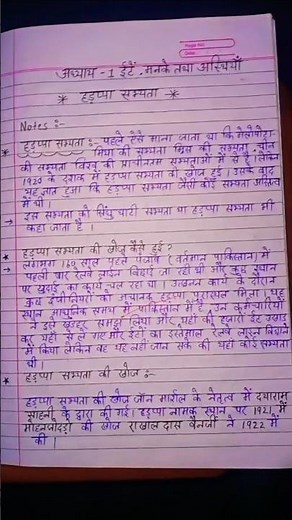 अध्याय - 1 ईंटें, मनके तथा अस्थियाँ
* हड़प्पा सभ्यता *
Notes :-
* हड़प्पा सभ्यता :- पहले ऐसे माना जाता था कि मेसोपोटा-
मिया की सभ्यता मिस्र की सभ्यता, चीन
की सभ्यता विश्व की प्राचीनतम सभ्यताओं में से है लेकिन
1920 के दशक में हड़प्पा सभ्यता की खोज हुई। उसके बाद
यह ज्ञात हुआ कि हड़प्पा सभ्यता जैसी कोई सभ्यता अस्तित्व
में थी।
→ इस सभ्यता को सिंधु घाटी सभ्यता या हड़प्पा सभ्यता भी
कहा जाता है।
* हड़प्पा सभ्यता की खोज कैसे हुई?
→ लगभग 160 साल पहले पंजाब (वर्तमान पाकिस्तान) में
पहली बार रेलवे लाईन बिछाई जा रही थी और कुछ स्थान
पर खुदाई का कार्य चल रहा था। उत्खनन कार्य के दौरान
कुछ इंजीनियरों को अचानक हड़प्पा पुरास्थल मिला, यह
स्थान आधुनिक समय में पाकिस्तान में है। उन कर्मचारियों
ने इसे खंडहर समझ लिया और यहाँ की हजारों ईंट उखाड़
कर यहाँ से ले गए और ईंटों का इस्तेमाल रेलवे लाइन बिछाने
में किया लेकिन वह यह नहीं जान सके की यहाँ कोई सभ्यता
थी।
* हड़प्पा सभ्यता की खोज :-
हड़प्पा सभ्यता की खोज जॉन मार्शल के नेतृत्व में दयाराम
साहनी के द्वारा की गई। हड़प्पा नामक स्थान पर 1921 में
मोहनजोदड़ो की खोज राखाल दास बैनर्जी ने 1922 में
की।